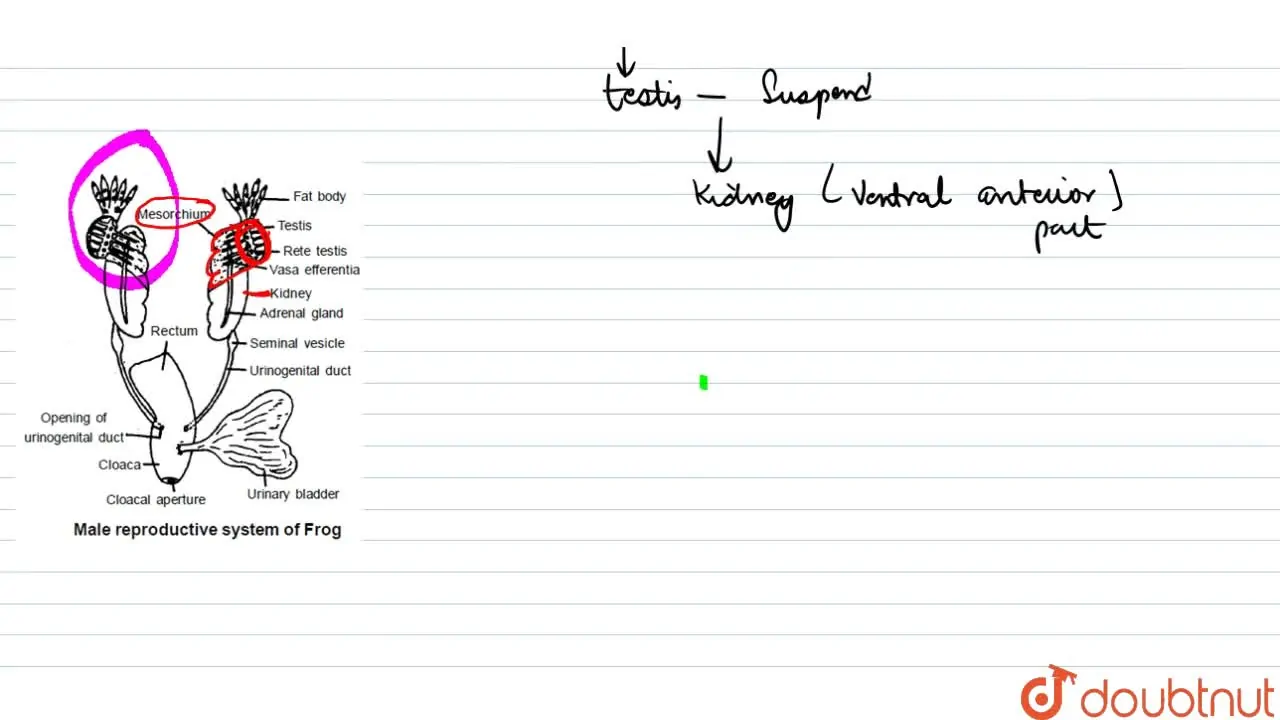 testis — Suspend
Kidney (Ventral anterior)
part
Fat body
Mesorchium
Testis
Rete testis
Vasa efferentia
Kidney
Adrenal gland
Rectum
Seminal vesicle
Urinogenital duct
Opening of
urinogenital duct
Cloaca
Urinary bladder
Cloacal aperture
Male reproductive system of Frog
doubtnut